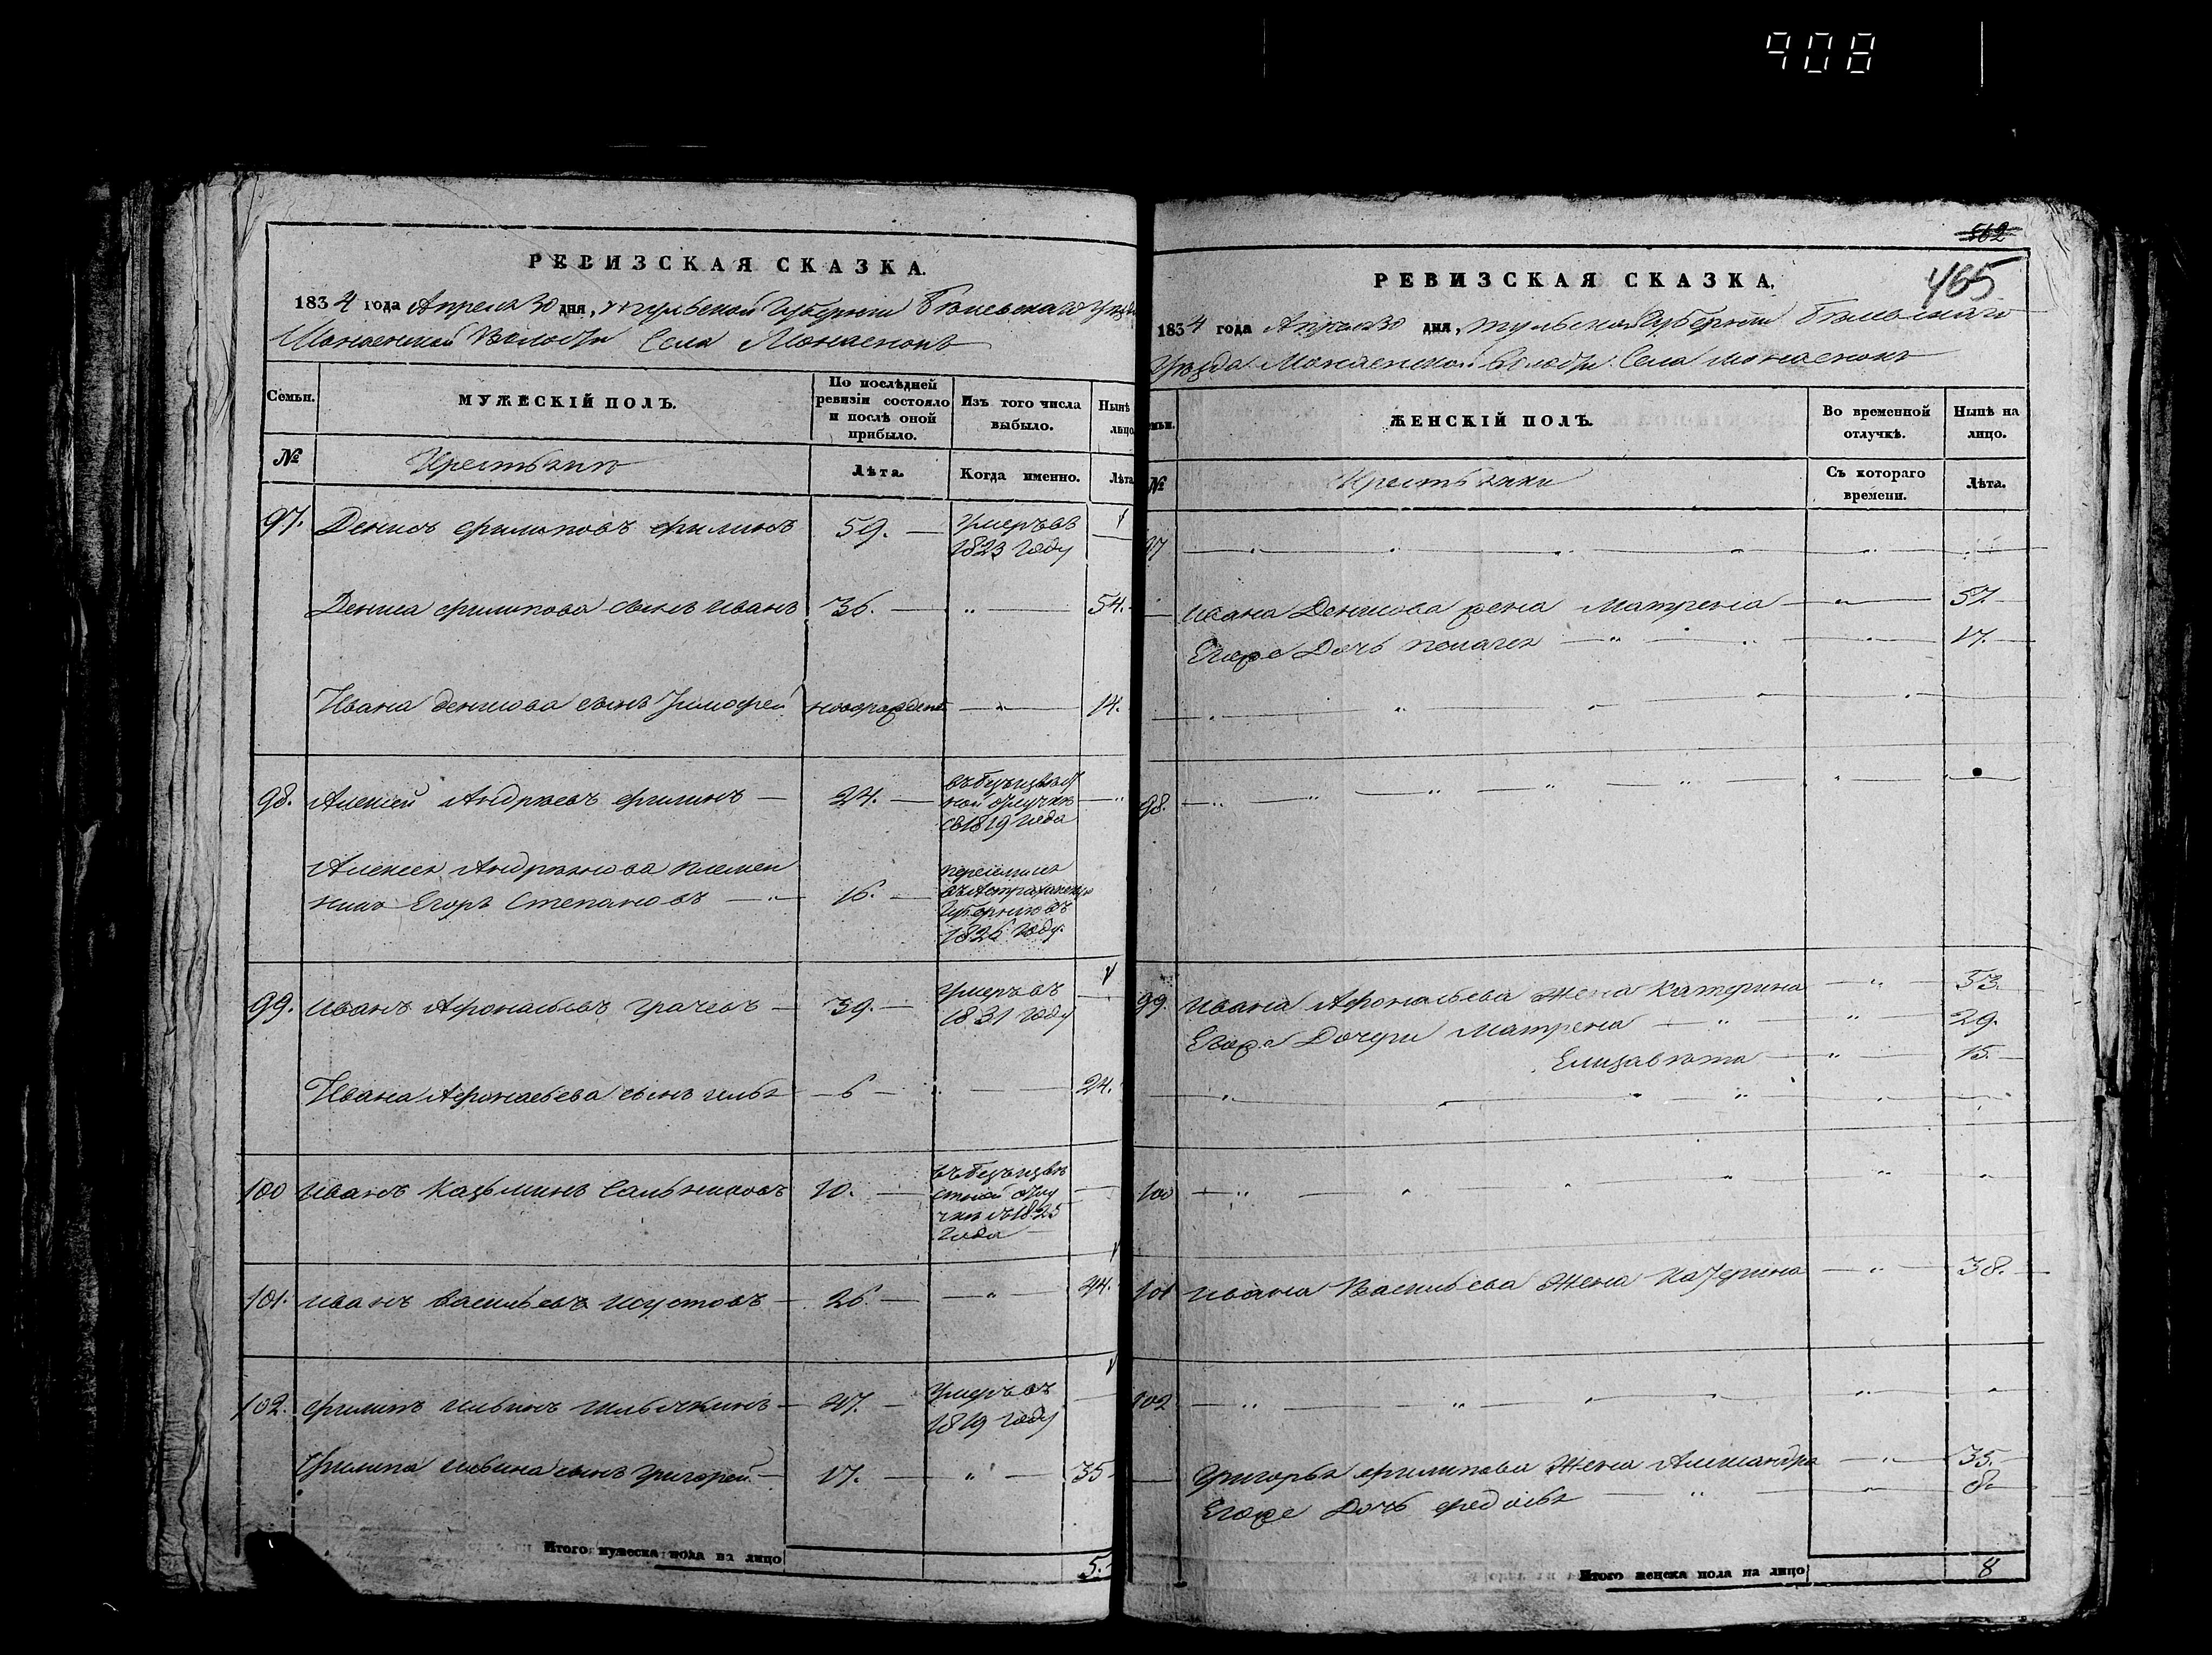 908
РЕВИЗСКАЯ СКАЗКА.
1834 года Апреля 30 дня, тульской Губернии Бѣлевскаго Уезда
Монаенской Волости Села Монаенокъ
Семьи.
МУЖЕСКІЙ ПОЛЪ.
По послѣдней ревизіи состояло и послѣ оной прибыло.
Изъ того числа выбыло.
Нынѣ лицо
№
Крестьяне
Лѣта.
Когда именно.
Лѣта
97. Денисъ филиповъ филинъ 59. Умеръ въ
1823 году
Дениса филипова сынъ иванъ 36. 54.
Ивана денисова сынъ Тимофей новорожденъ 14.
98. Алексей Андреевъ филинъ 24. въ безъизвѣст
ной отлучке
съ 1819 года
Алексея Андреянова племен
никъ Егоръ Степановъ 16. переселился
въ Астраханскую
Губернию въ
1826 году.
99. иванъ Афонасьевъ грачевъ 39. Умеръ въ
1831 году
Ивана Афонасьева сынъ илья 6 24.
100 иванъ Казьминъ Сальниковъ 10. въ безъизве
стной отлу
чке съ 1825
года
101. иванъ васильевъ шустовъ 26. 44.
102. филипъ ильинъ ильичкинъ 47. Умеръ въ
1819 году
Филипа ильина сынъ григорей 17. 35
Итого мужеска пола на лицо
5.
562
465
РЕВИЗСКАЯ СКАЗКА.
1834 года Апреля 30 дня, тульской Губернии Бѣлевскаго
Уезда Монаенской Волости Села монаенокъ
ЖЕНСКІЙ ПОЛЪ.
Во временной отлучкѣ.
Нынѣ на лицо.
№
Крестьянки
Съ котораго времени.
Лѣта.
97
ивана Денисова жена Матрена 57.
Егоже Дочь пелагея 17.
98.
99. ивана Афонасьева Жена Катерина 53.
Егоже Дочери Матрена 29.
Елизавета 15.
100
101 ивана Васильева Жена Катерина 38.
102
Григорья филипова Жена Александра 35.
Егоже Дочь федосья 8.
Итого женска пола на лицо
8